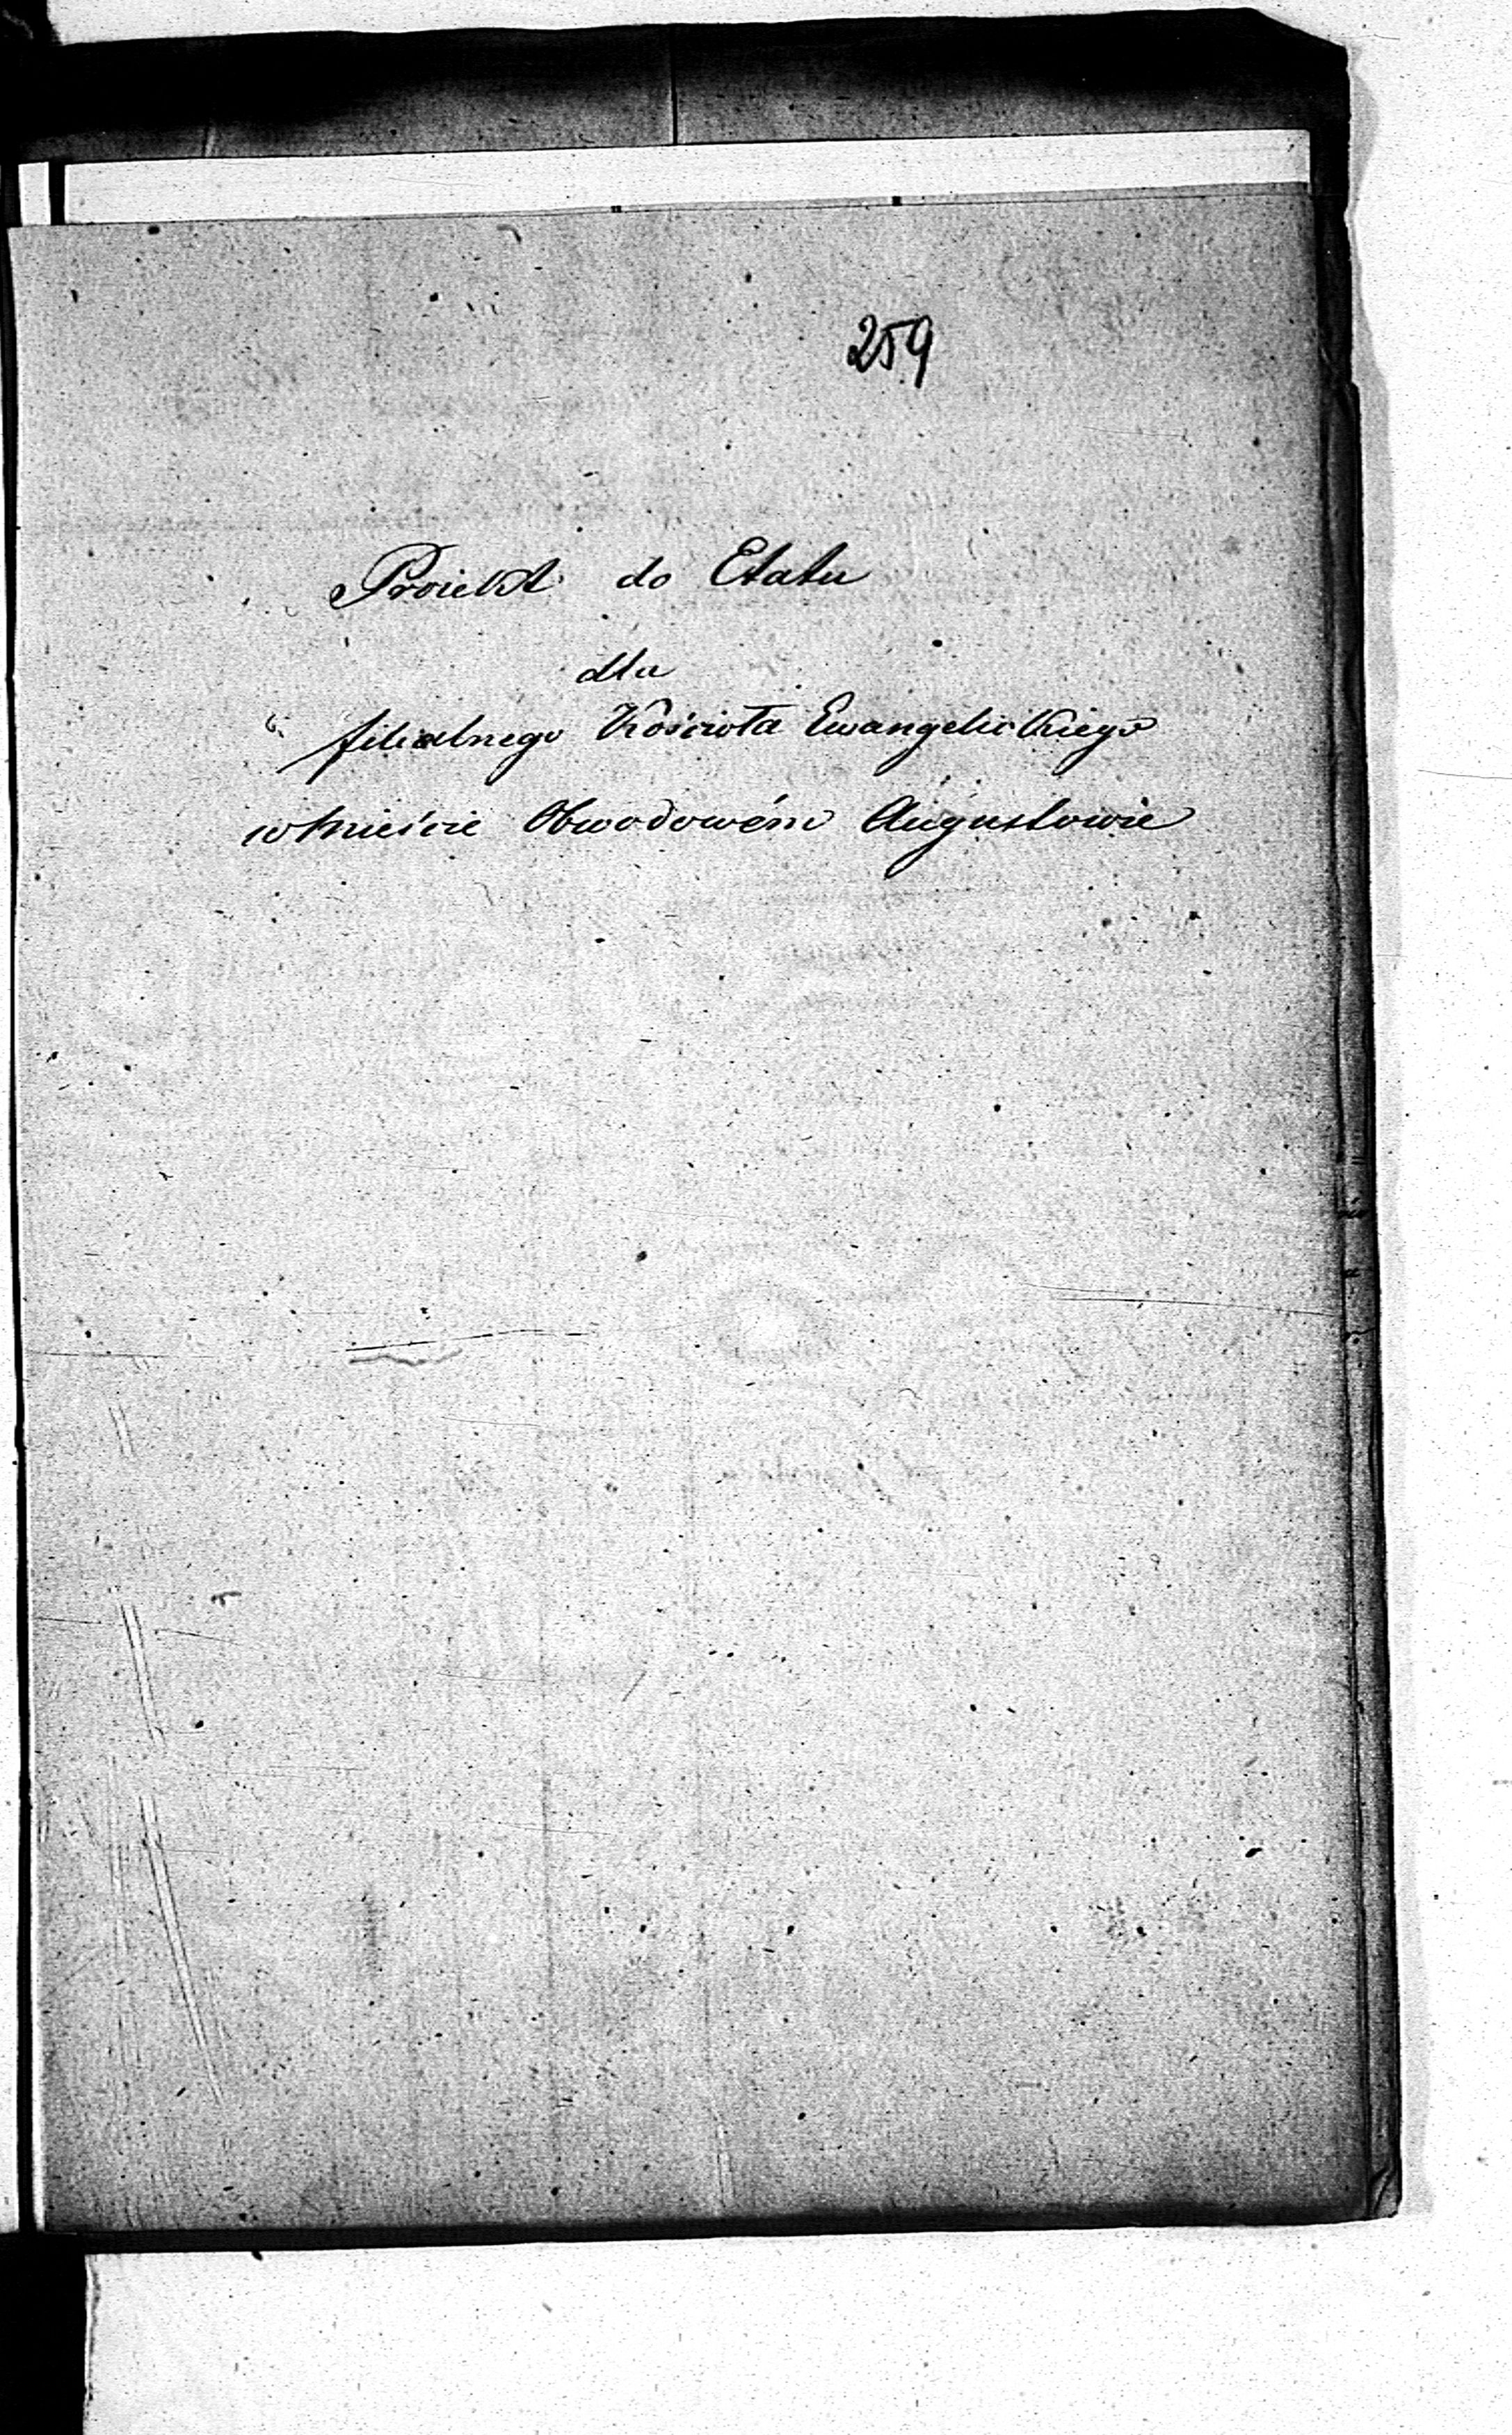 259
Proiekt do Etatu
dla
filialnego Kościoła Ewangelickiego
w Mieście Obwodowém Augustowie